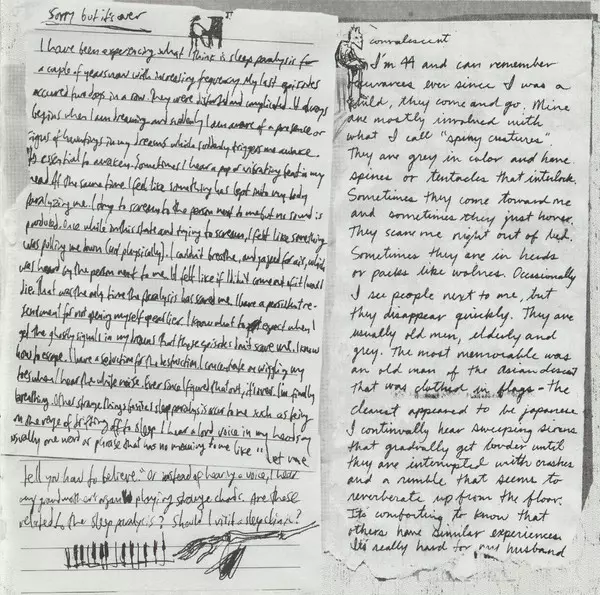 Sorry but it's over
I have been experiencing what I think is sleep paralysis for
a couple of years now with increasing frequency. My last episodes
occurred two days in a row. They were distorted and complicated. It always
begins when I am dreaming and suddenly I am aware of a presence or
signs of hauntings in my dreams which suddenly triggers me awake.
Its essential to awaken. Sometimes I hear a pop or vibrating beat in my
head. At the same time I feel like something has lept into my body
paralyzing me. I try to scream to the person next to me but no sound is
produced. Once while in this state and trying to scream, I felt like something
was pulling me down (not physically). I couldn't breathe, and gasped for air, which
was heard by the person next to me. It felt like if I didn't come out of it I would
die. That was the only time the paralysis has scared me. I have a persistent re-
sentment for not opening myself up earlier. I know what to expect when I
get the ghostly signals in my dreams that those episodes don't scare me. I know
how to escape. I have a seduction for the destruction. I concentrate on wiggling my
toes when I hear the white noise. Ever since I figured that out, it's over. I'm finally
breathing. Other strange things besides sleep paralysis occur to me such as being
on the verge of drifting off to sleep I hear a loud voice in my head say
usually one word or phrase that has no meaning to me like "let me
tell you how to believe." Or instead of hearing a voice, I hear
my organ playing strange chords. Are these
related to the sleep paralysis? Should I visit a sleep clinic?
convalescent
I'm 44 and can remember
occurances ever since I was a
child, they come and go. Mine
are mostly involved with
what I call "spiny creatures"
They are grey in color and have
spines or tentacles that interlock.
Sometimes they come toward me
and sometimes they just hover.
They scare me right out of bed.
Sometimes they are in herds
or packs like wolves. Occasionally
I see people next to me, but
they disappear quickly. They are
usually old men, elderly and
grey. The most memorable was
an old man of the asian descent
that was clothed in flags - the
clearest appeared to be japanese
I continually hear sweeping sirens
that gradually get louder until
they are interrupted with crashes
and a rumble that seems to
reverberate up from the floor.
Its comforting to know that
others have similar experiences.
Its really hard for my husband